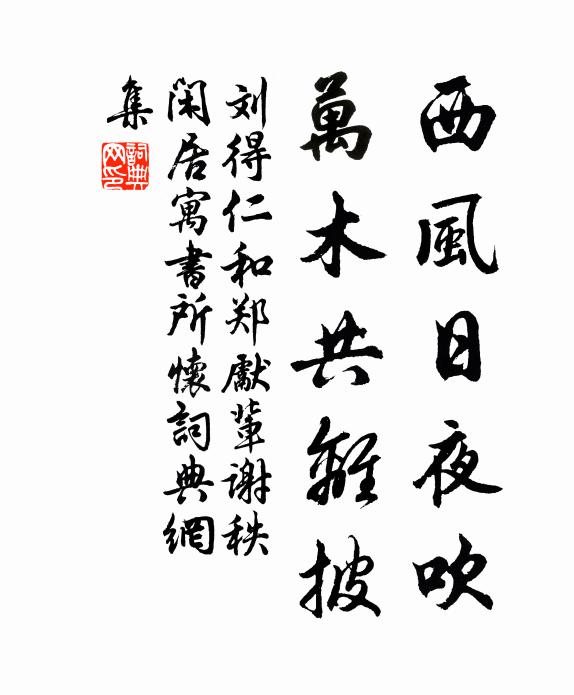 西風日夜吹
萬木共離披
刘得仁和郑獻輩謝秩
閑居寓書所懷詞典網
集
詞典
网印